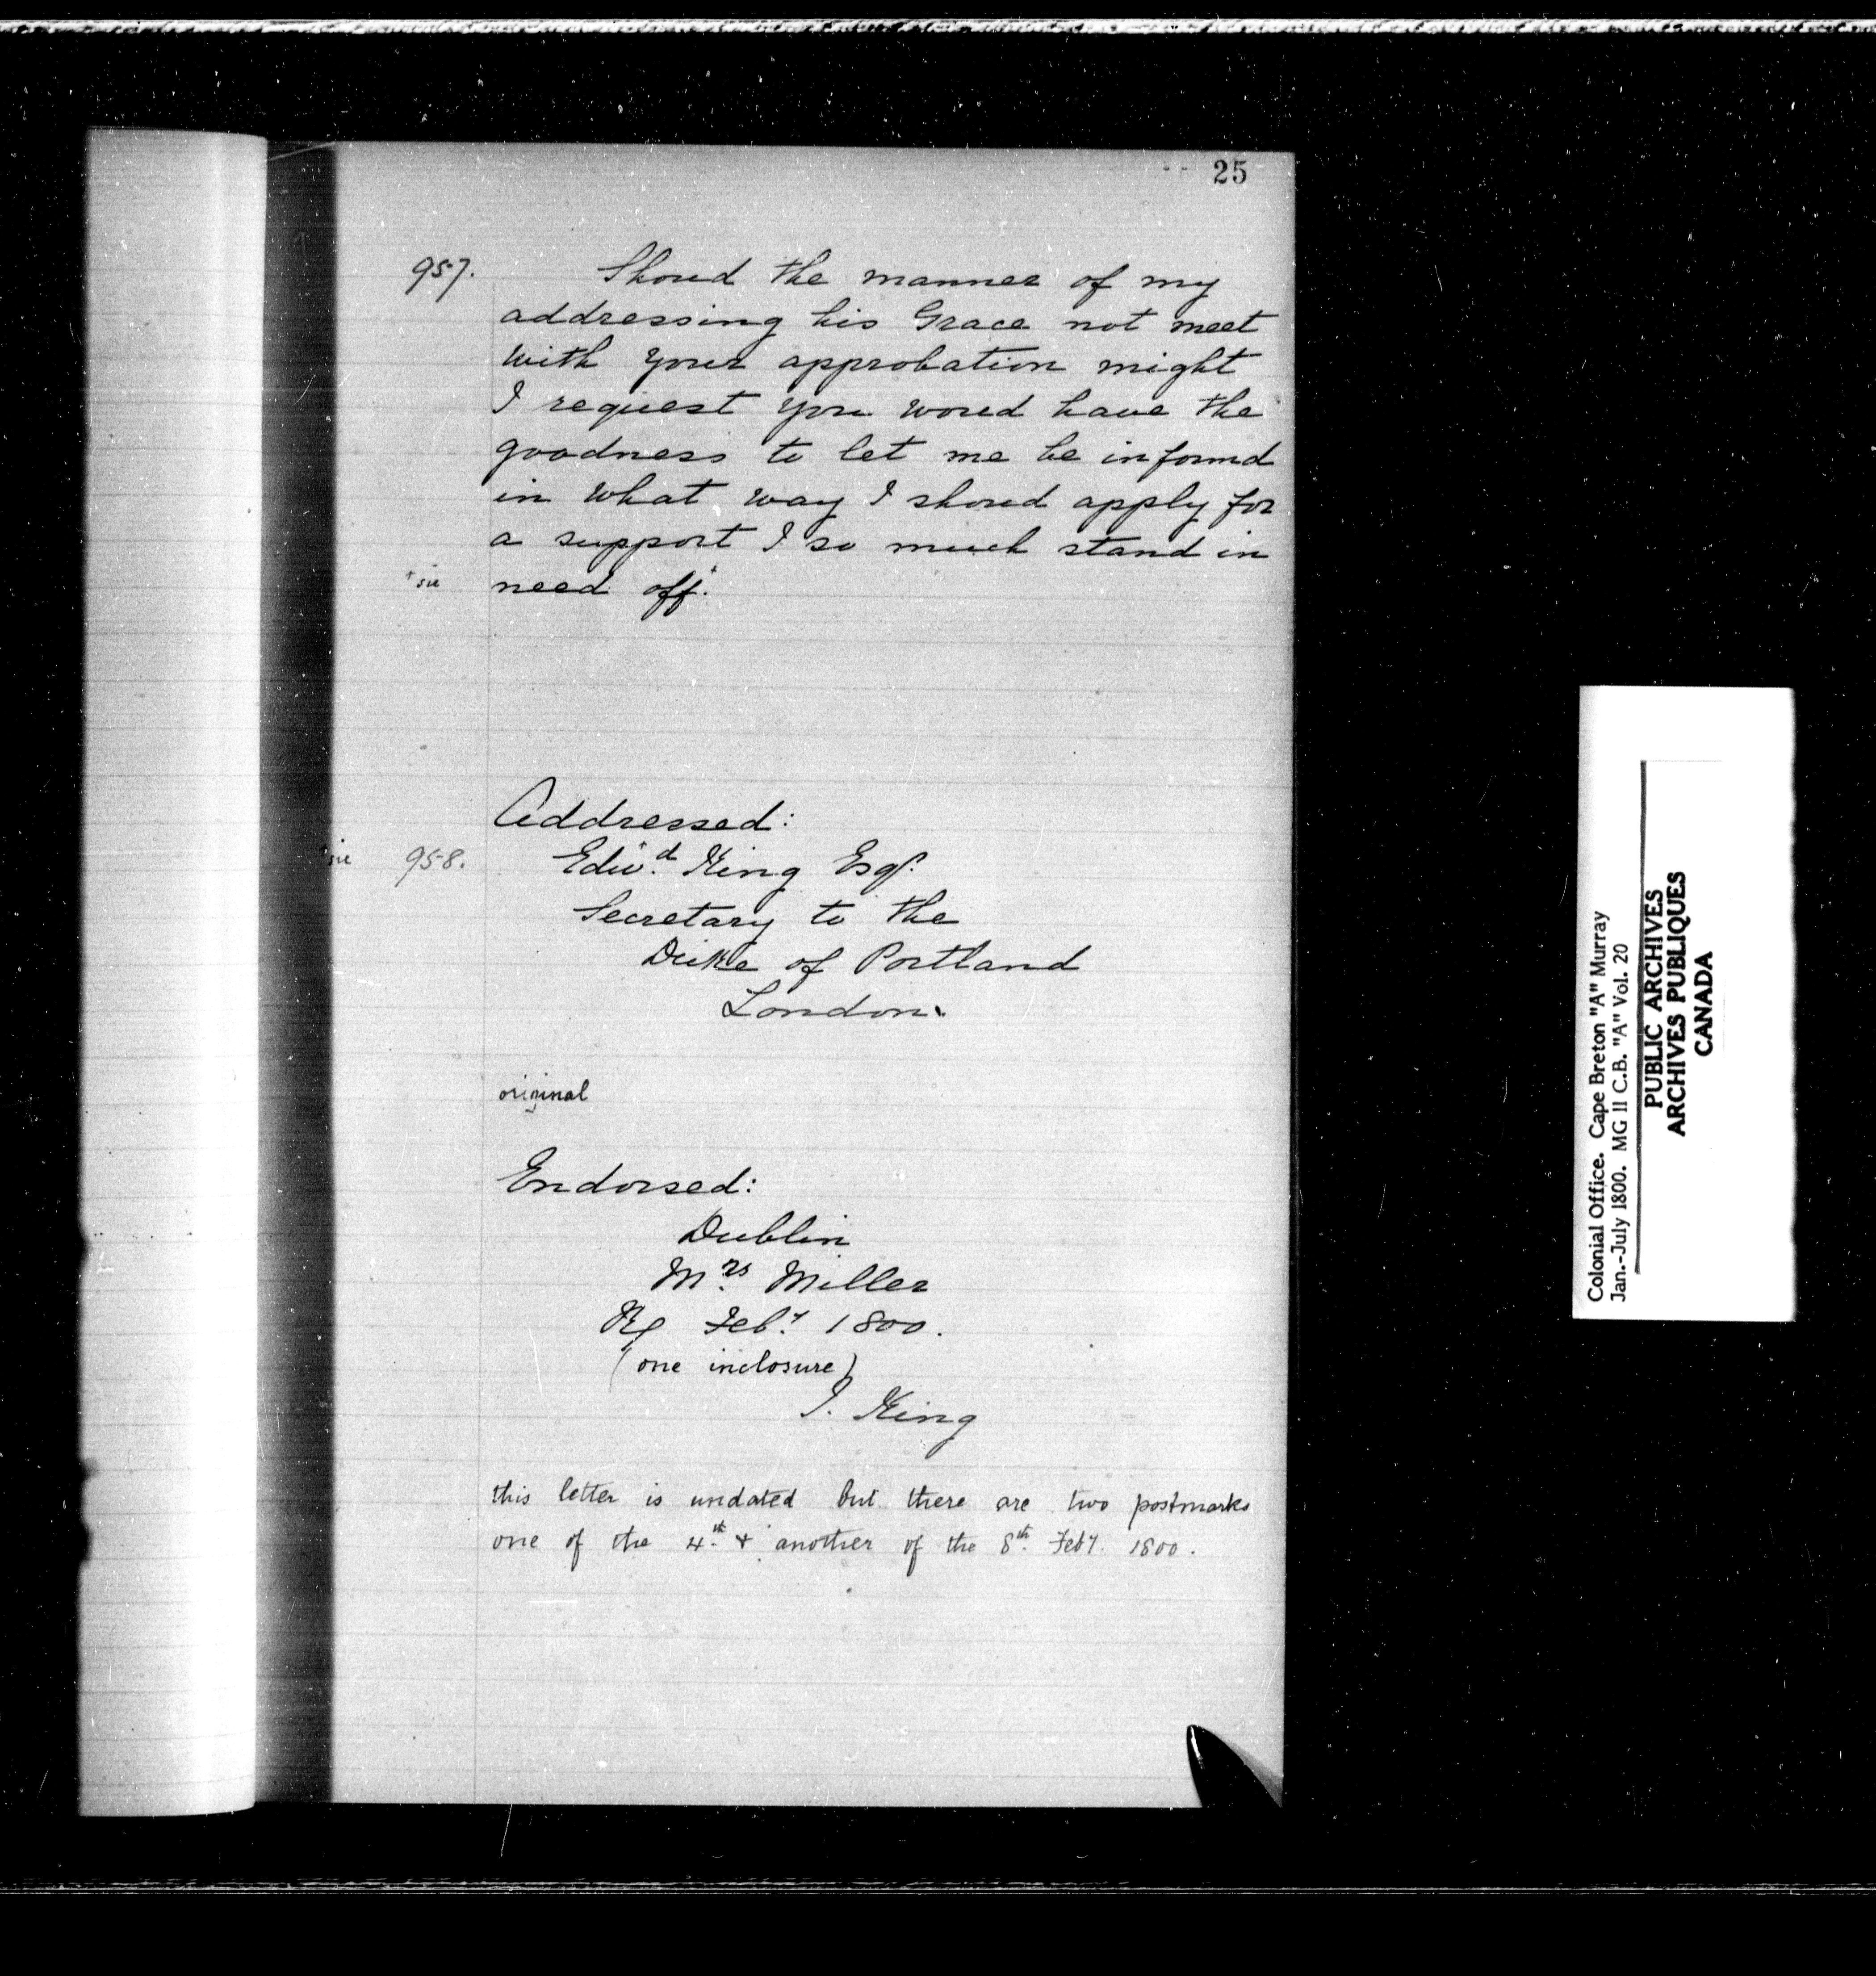 25
957. Shoud the manner of my
addressing his Grace not meet
with your approbation might
I request you woud have the
goodness to let me be informd
in what way I shoud apply for
a support I so much stand in
+sic need off+.
Addressed:
+sic 958. Edw+.d King Esqr.
Secretary to the
Duke of Portland
London.
original
Endorsed:
Dublin
Mrs. Miller
Rx Feby. 1800.
(one inclosure)
J. King
this letter is undated but there are two postmarks
one of the 4th. & another of the 8th. Feby. 1800.
Colonial Office. Cape Breton "A" Murray
Jan.-July 1800. MG 11 C.B. "A" Vol. 20
PUBLIC ARCHIVES
ARCHIVES PUBLIQUES
CANADA